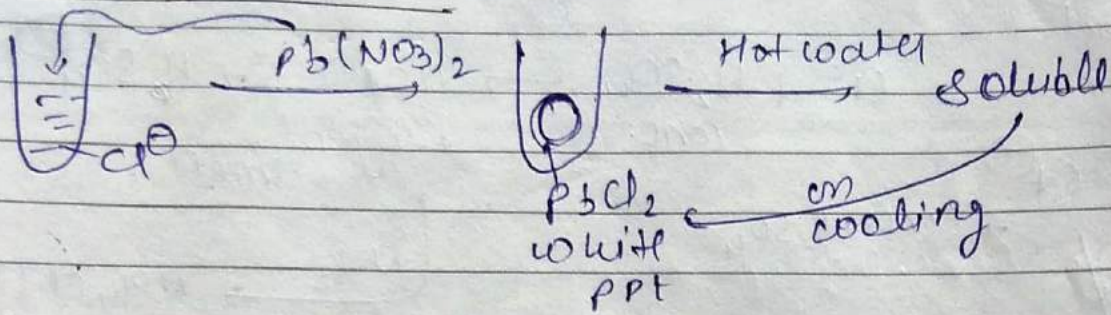 Pb(NO3)2
Hot water
soluble
Cl⊖
PbCl2
white
ppt
on
cooling